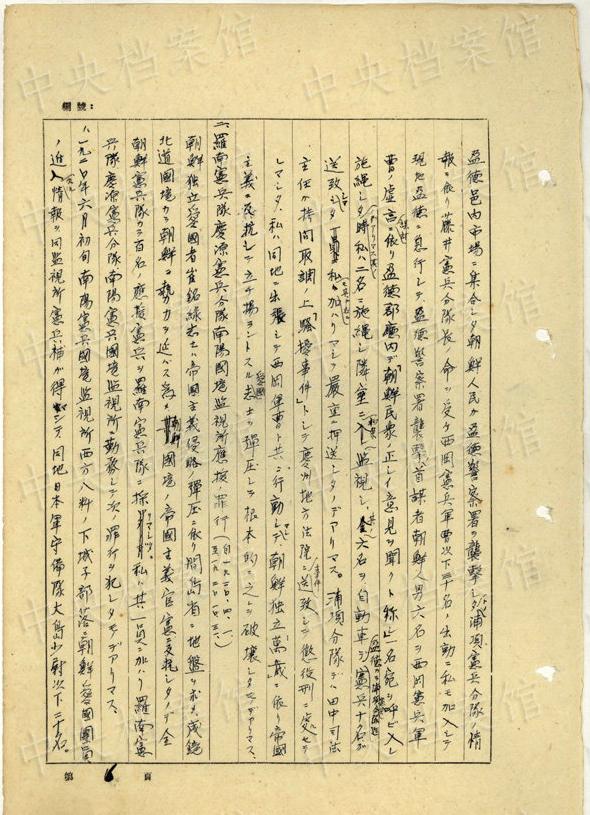 中央档案馆
編號：
盈德邑内市場ニ集合シタ朝鮮人民ガ盈德警察署ヲ襲撃シタトノ浦項憲兵分隊ノ情
報ニ依リ藤井憲兵分隊長ノ命ヲ受ケ西岡憲兵軍曹以下三名ノ出動ニ私モ加入シテ
現地盈德ニ急行シテ、盈德警察署襲撃ノ首謀者朝鮮人男六名ヲ西岡憲兵軍
曹ノ虚言ニ依リ盈德郡廳内デ「朝鮮民衆ノ正シイ意見ヲ聞クト称シ一名宛ヲ呼ビ入レ
施縄シタ時私ハ二名ニ施縄シ隣室ニ入レ監視シ、全六名ヲ自動車デ憲兵十名ガ
送致シタ 私モ加ハリマシテ嚴重ニ押送シタノデアリマス。浦項分隊デハ田中司法
主任ガ拷問取調ノ上「騒擾事件」トシテ慶州地方法院ニ送致シテ懲役刑ニ処セラ
レマシタ、私ハ同地ニ出張シテ西岡軍曹ト共ニ行動シテ朝鮮独立萬歳ニ依リ帝國
主義ニ反抗シテ立チ揚ラントスル愛國志士ヲ彈圧シテ根本的ニ之レヲ破壊シタモノデアリマス、
二、羅南憲兵隊慶源憲兵分隊南陽國境監視所應援ノ罪行（自一九二〇、四、一
朝鮮独立愛國者崔銘緑志士ハ帝國主義侵略ノ彈圧ニ依リ間島省ニ地盤ヲ求メ咸鏡
北道國境カラ朝鮮ニ勢力ヲ延バス為メ 朝鮮國境ノ帝國主義官憲ヲ支配シタノデ全
朝鮮憲兵隊カラ百名ノ應援憲兵ヲ羅南憲兵隊ニ採リマシタ。私ハ其一員ニ加ハリ羅南憲
兵隊慶源憲兵分隊南陽憲兵國境監視所ニ勤務シテ次ノ罪行ヲ犯シタモノデアリマス。
八、一九二〇年六月初旬南陽憲兵國境監視所西方八粁ノ下城子部落ニ朝鮮人愛國團員
ノ近入情報ヲ同監視所憲兵補ガ得マシテ、同地日本軍守備隊大島少尉以下二十名。
第 6 頁